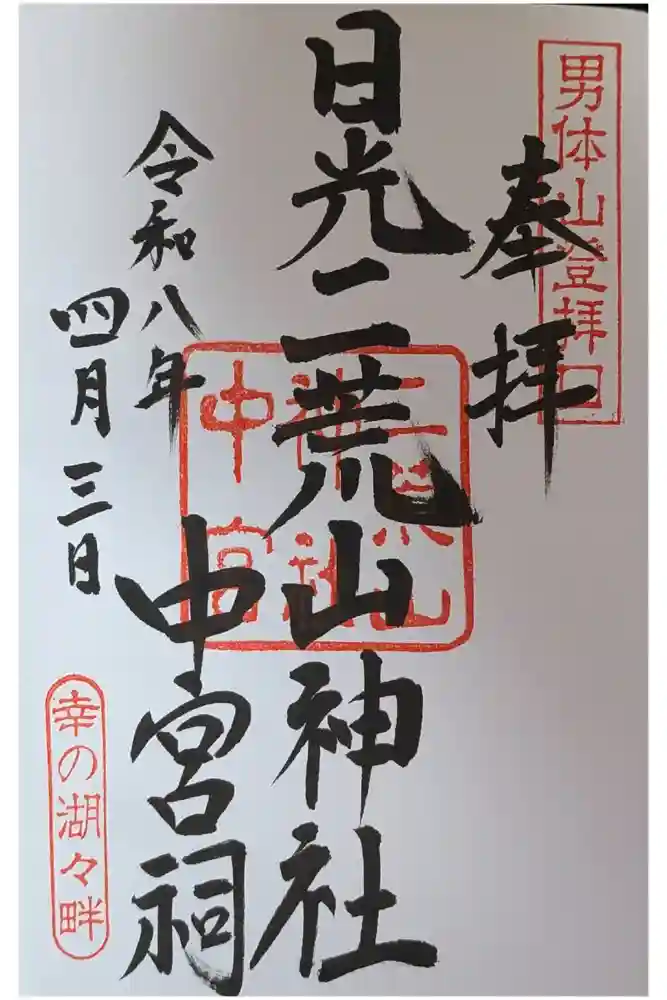 男体山登拝口
奉拝
日光二荒山神社
中宮祠
令和八年
四月三日
二荒山
神社
中宮
幸の湖々畔